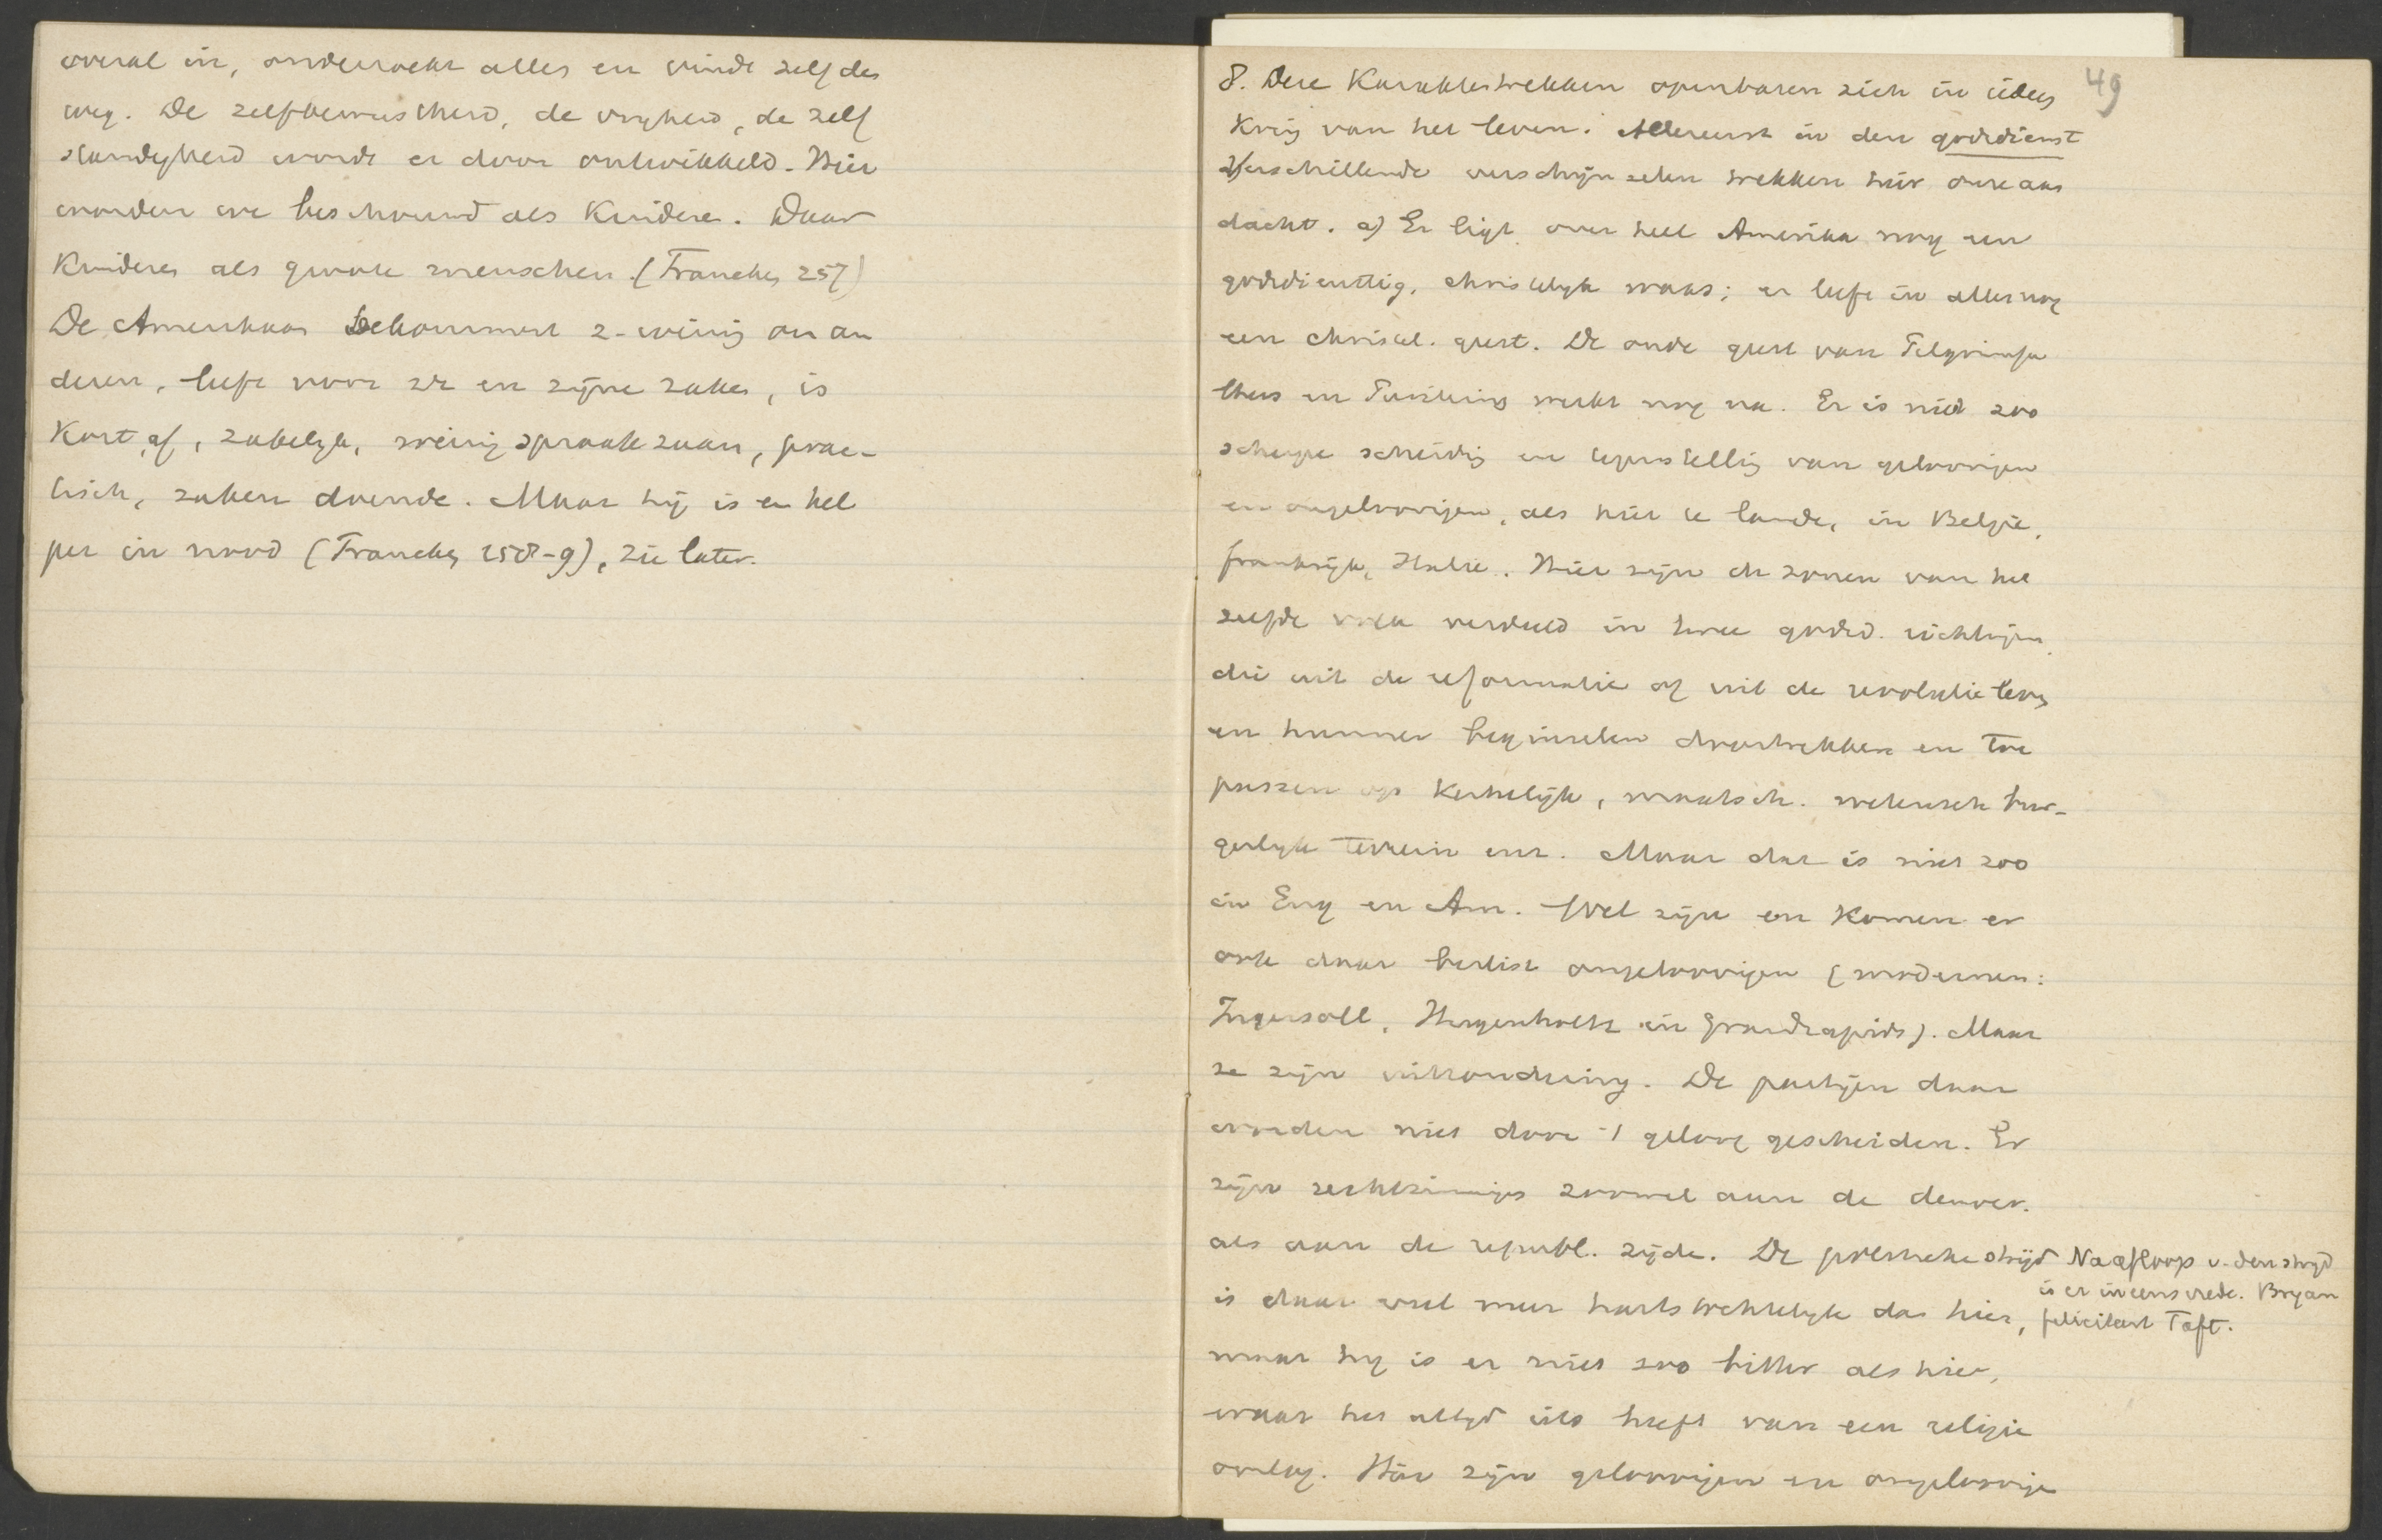 overal in, onderzoekt alles en vindt zelf den
weg. De zelfbewustheid, de vrijheid, de zelf
standigheid wordt er door ontwikkeld. Hier
worden we beschouwd als Kinderen. Daar
Kinderen als groote menschen. (Francke, 257)
De Amerikaan bekommert z. weinig om an
deren, leeft voor zich en zijne zaken, is
Kort af, zakelijk, weinig spraakzaam, prac-
tisch, zaken doende. Maar hij is en hel
per in nood (Francke, 258-9), zie later.
49
8. Deze Karaktertrekken openbaren zich in ieder
Kring van het leven. Allereerst in den godsdienst
Verschillende verschijnselen trekken hier onze aan
dacht. a) Er ligt over heel Amerika nog een
godsdienstig, christelijk waas; er leeft in alles nog
een christel. geest. De oude geest van Pelgrimfa
thers en Puriteins werkt nog na. Er is niet zoo
scherpe scheiding en tegenstelling van geloovigen
en ongeloovigen, als hier te lande, in België,
Frankrijk, Italie. Hier zijn de zonen van het
zelfde volk verdeeld in twee godsd. richtingen,
die uit de reformatie of uit de revolutie leven
en hunner beginselen doortrekken en toe
passen op Kerkelijk, maatsch. wetensch. bur-
gerlijk terrein enz. Maar dat is niet zoo
in Eng en Am. Wel zijn en Komen er
ook daar beslist ongeloovigen (modernen:
Ingersoll, Hugenholtz in Grandrapids). Maar
ze zijn uitzondering. De partijen daar
worden niet door 't geloof gescheiden. Er
zijn rechtzinnigen zoowel aan de democr.
als aan de republ. zijde. De politieke strijd
is daar veel meer hartstochtelijk dan hier,
Na afloop v. den strijd
is er ineens vrede. Bryan
feliciteert Taft.
maar hij is er niet zoo bitter als hier,
waar het altijd iets heeft van een religie
oorlog. Hier zijn geloovigen en ongeloovige